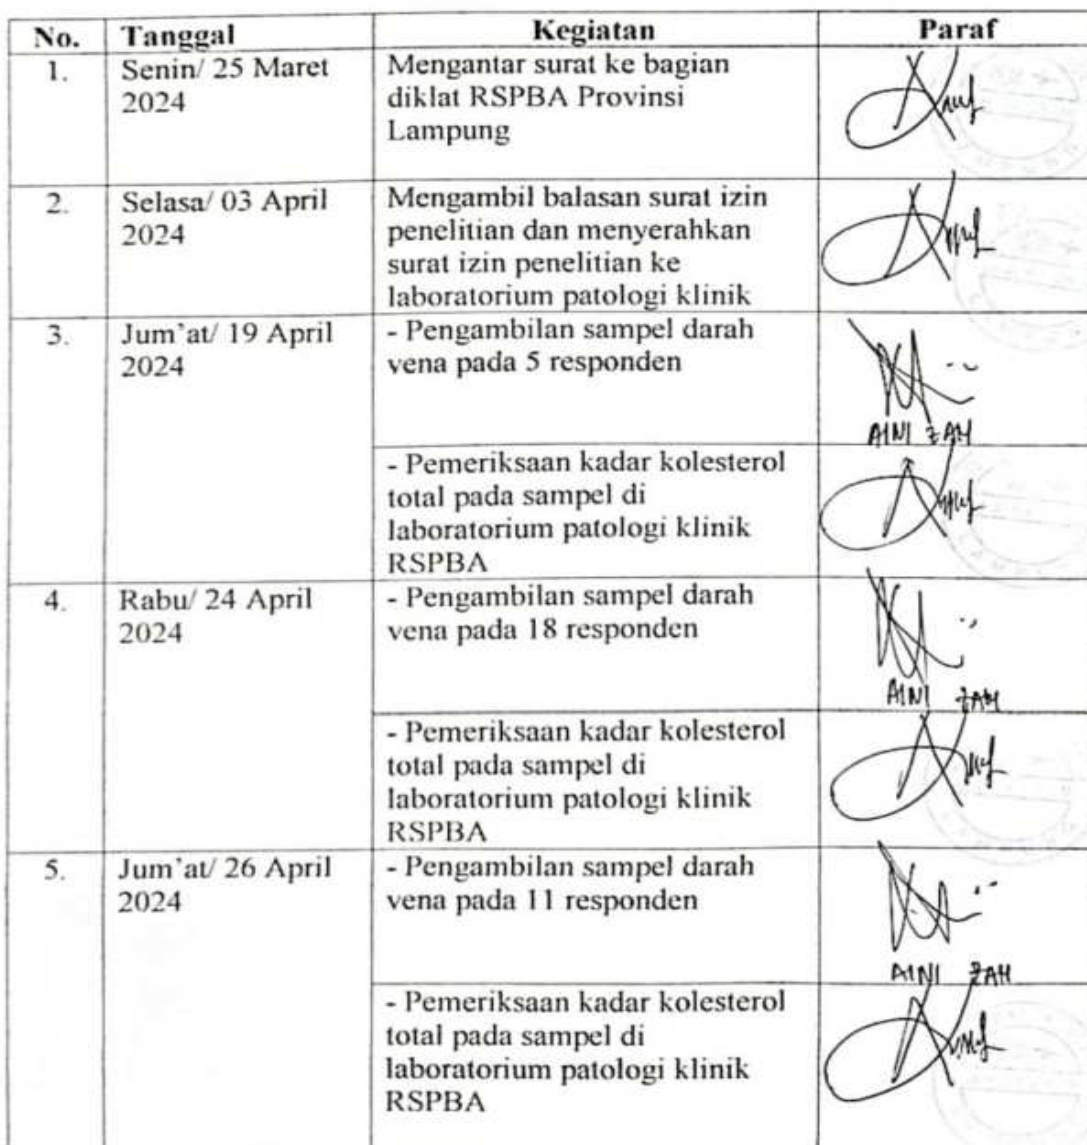 No. Tanggal Kegiatan Paraf
1. Senin/ 25 Maret 2024
Mengantar surat ke bagian
diklat RSPBA Provinsi
Lampung
2. Selasa/ 03 April 2024
Mengambil balasan surat izin
penelitian dan menyerahkan
surat izin penelitian ke
laboratorium patologi klinik
3. Jum'at/ 19 April 2024
- Pengambilan sampel darah
vena pada 5 responden
AINI ZAH
- Pemeriksaan kadar kolesterol
total pada sampel di
laboratorium patologi klinik
RSPBA
4. Rabu/ 24 April 2024
- Pengambilan sampel darah
vena pada 18 responden
AINI ZAH
- Pemeriksaan kadar kolesterol
total pada sampel di
laboratorium patologi klinik
RSPBA
5. Jum'at/ 26 April 2024
- Pengambilan sampel darah
vena pada 11 responden
AINI ZAH
- Pemeriksaan kadar kolesterol
total pada sampel di
laboratorium patologi klinik
RSPBA